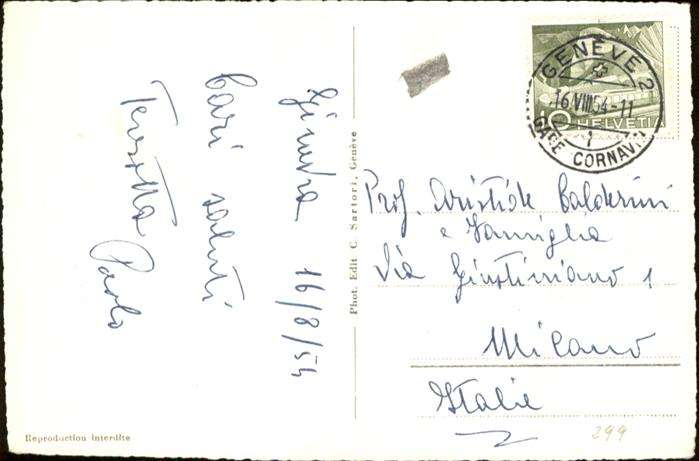 Ginevra 16/8/54
Cari saluti
Teresita Paolo
Phot. Edit C. Sartori, Genève
Reproduction interdite
GENÈVE 2
16.VIII.54-11
1
GARE CORNAVIN
HELVETIA
Prof. Aristide Calderini
e Famiglia
Via Giustiniano 1
Milano
Italie
299